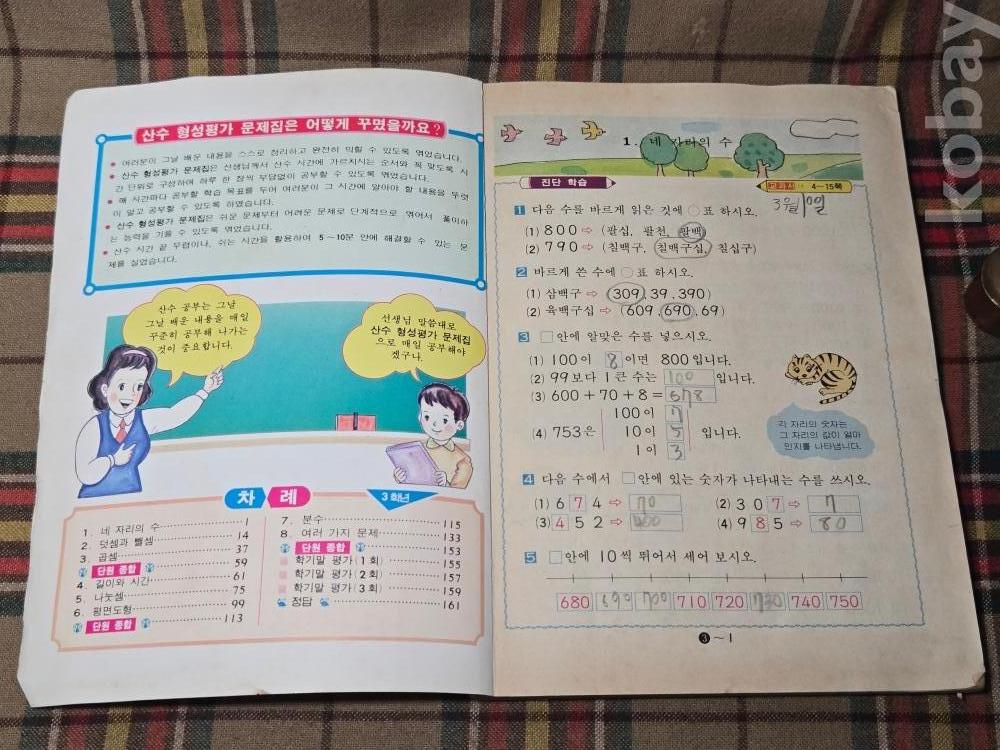 산수 형성평가 문제집은 어떻게 꾸몄을까요?
여러분이 그날 배운 내용을 스스로 정리하고 완전히 익힐 수 있도록 엮었습니다.
산수 형성평가 문제집은 선생님께서 산수 시간에 가르치시는 순서와 꼭 맞도록 시
간 단위로 구성하여 하루 한 장씩 부담없이 공부할 수 있도록 엮었습니다.
매 시간마다 공부할 학습 목표를 두어 여러분이 그 시간에 알아야 할 내용을 뚜렷
이 알고 공부할 수 있도록 하였습니다.
산수 형성평가 문제집은 쉬운 문제부터 어려운 문제로 단계적으로 엮어서 풀이하
는 능력을 기를 수 있도록 엮었습니다.
산수 시간 끝 무렵이나, 쉬는 시간을 활용하여 5~10분 안에 해결할 수 있는 문
제를 실었습니다.
산수 공부는 그날
그날 배운 내용을 매일
꾸준히 공부해 나가는
것이 중요합니다.
선생님 말씀대로
산수 형성평가 문제집
으로 매일 공부해야
겠구나.
차례
3학년
1. 네 자리의 수 1
2. 덧셈과 뺄셈 14
3. 곱셈 37
단원 종합 59
4. 길이와 시간 61
5. 나눗셈 75
6. 평면도형 99
단원 종합 113
7. 분수 115
8. 여러 가지 문제 133
단원 종합 153
학기말 평가(1회) 155
학기말 평가(2회) 157
학기말 평가(3회) 159
정답 161
1. 네 자리의 수
진단 학습
교과서 4~15쪽
3월 10일
1 다음 수를 바르게 읽은 것에 ○표 하시오.
(1) 800⇨ (팔십, 팔천, 팔백)
(2) 790⇨ (칠백구, 칠백구십, 칠십구)
2 바르게 쓴 수에 ○표 하시오.
(1) 삼백구⇨ (309, 39, 390)
(2) 육백구십⇨ (609, 690, 69)
3 □안에 알맞은 수를 넣으시오.
(1) 100이 8이면 800입니다.
(2) 99보다 1 큰 수는 100입니다.
(3) 600+70+8=678
100이 7
(4) 753은 10이 5 입니다.
1이 3
각 자리의 숫자는
그 자리의 값이 얼마
인지를 나타냅니다.
4 다음 수에서 □안에 있는 숫자가 나타내는 수를 쓰시오.
(1) 6 7 4⇨ 70 (2) 3 0 7⇨ 7
(3) 4 5 2⇨ 400 (4) 9 8 5⇨ 80
5 □안에 10씩 뛰어서 세어 보시오.
680 690 700 710 720 730 740 750
3~1
kobay